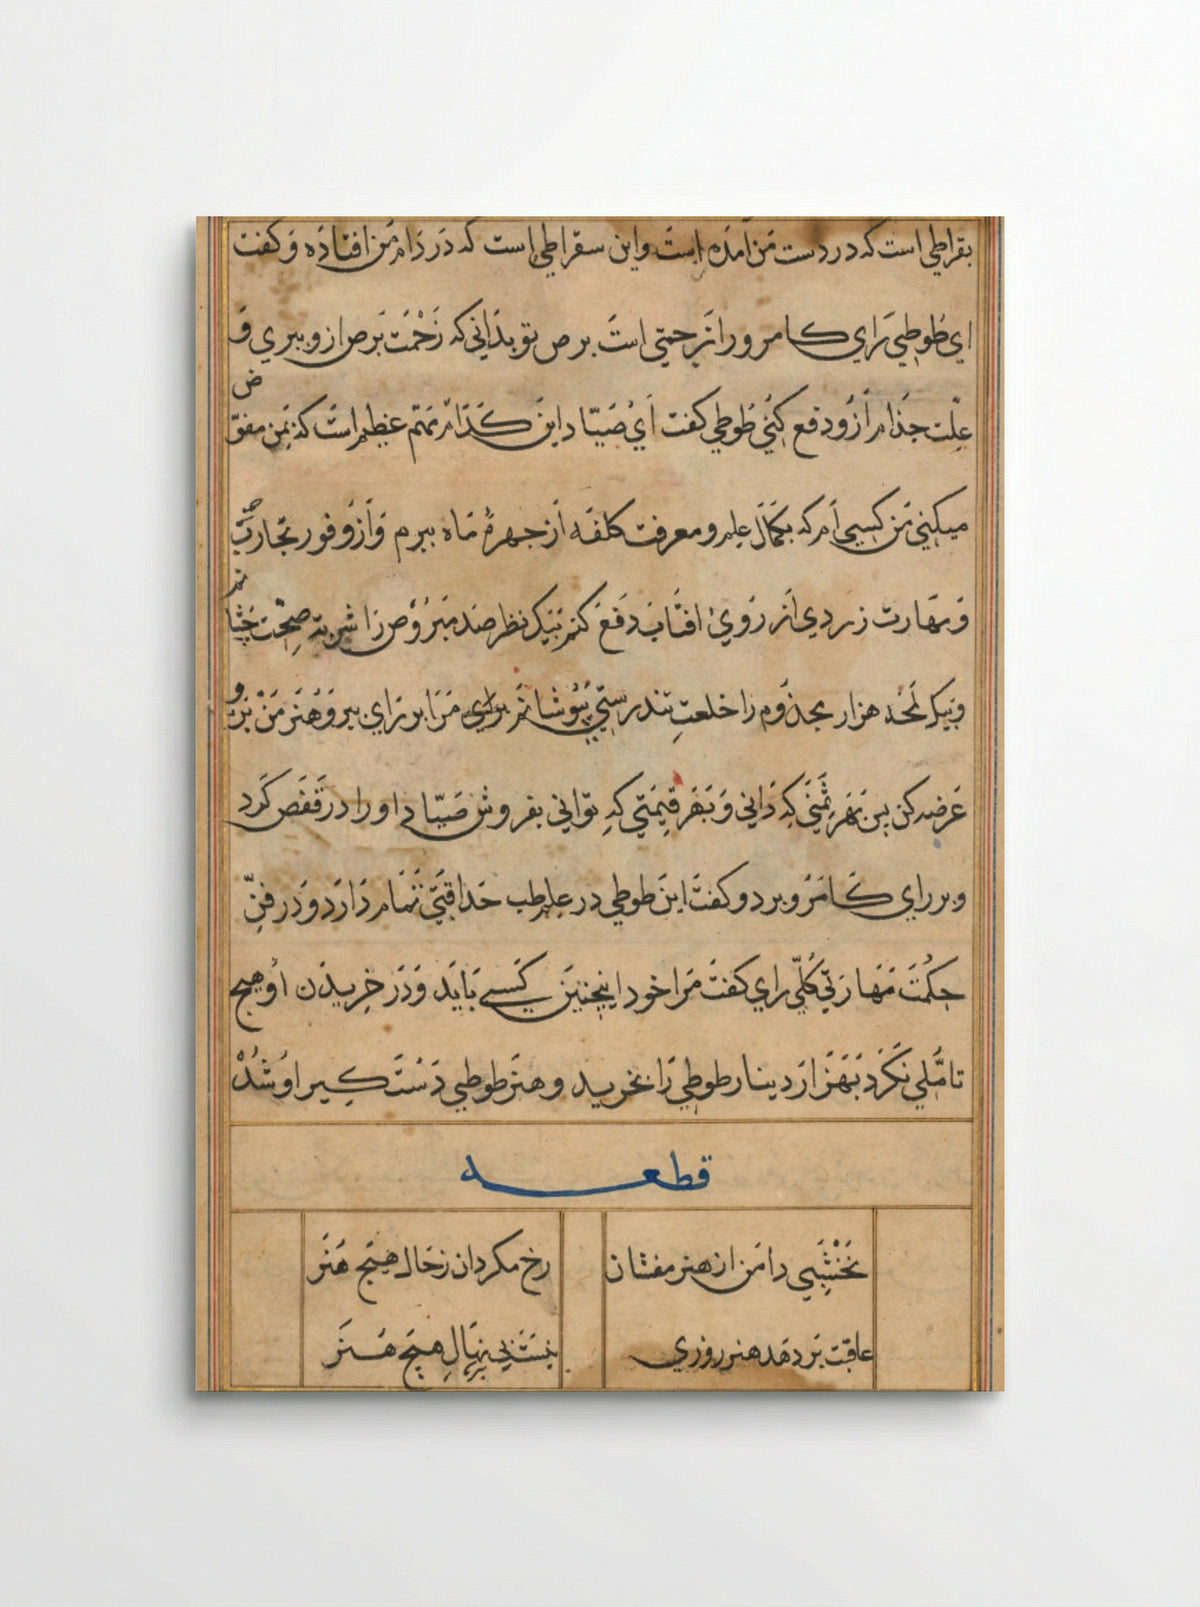 بقراطی است که در دست من آمده است و این سقراطی است که در دام من افتاده و کفت
ای طوطی رای کامرو را زحمتی است برص تو بدانی که زحمت برص ازو ببری و
علت جذام ازو دفع کنی طوطی کفت ای صیاد این کدام تمتم عظیم است که بمن مفوض
میکنی من کسی ام که بکمال علم و معرفت کلفه از جهرهٔ ماه ببرم و از وفور تجارب
و مهارت زردی از روی افتاب دفع کنم بیک نظر صد مبروص را شربت صحت چشانم
و بیک لمحه هزار مجذوم را خلعت تندرستی پوشانم مرا بر رای ببر و هنر من برو
عرضه کن پس بهر ثمنی که دانی و بهر قیمتی که توانی بفروش صیاد او را در قفص کرد
و بر رای کامرو برد و کفت این طوطی در علم طب حذاقتی تمام دارد و در فن
حکمت مهارتی کلی رای کفت مرا خود اینچنین کسی باید و در خریدن او هیچ
تاملی نکرد بهزار دینار طوطی را بخرید و هنر طوطی دست کیر او شد
قطعه
نخشبی دامن از هنر مفشان رخ مکردان زحال هیچ هنر
عاقبت بر دهد هنر روزی نیست بی بر نهال هیچ هنر